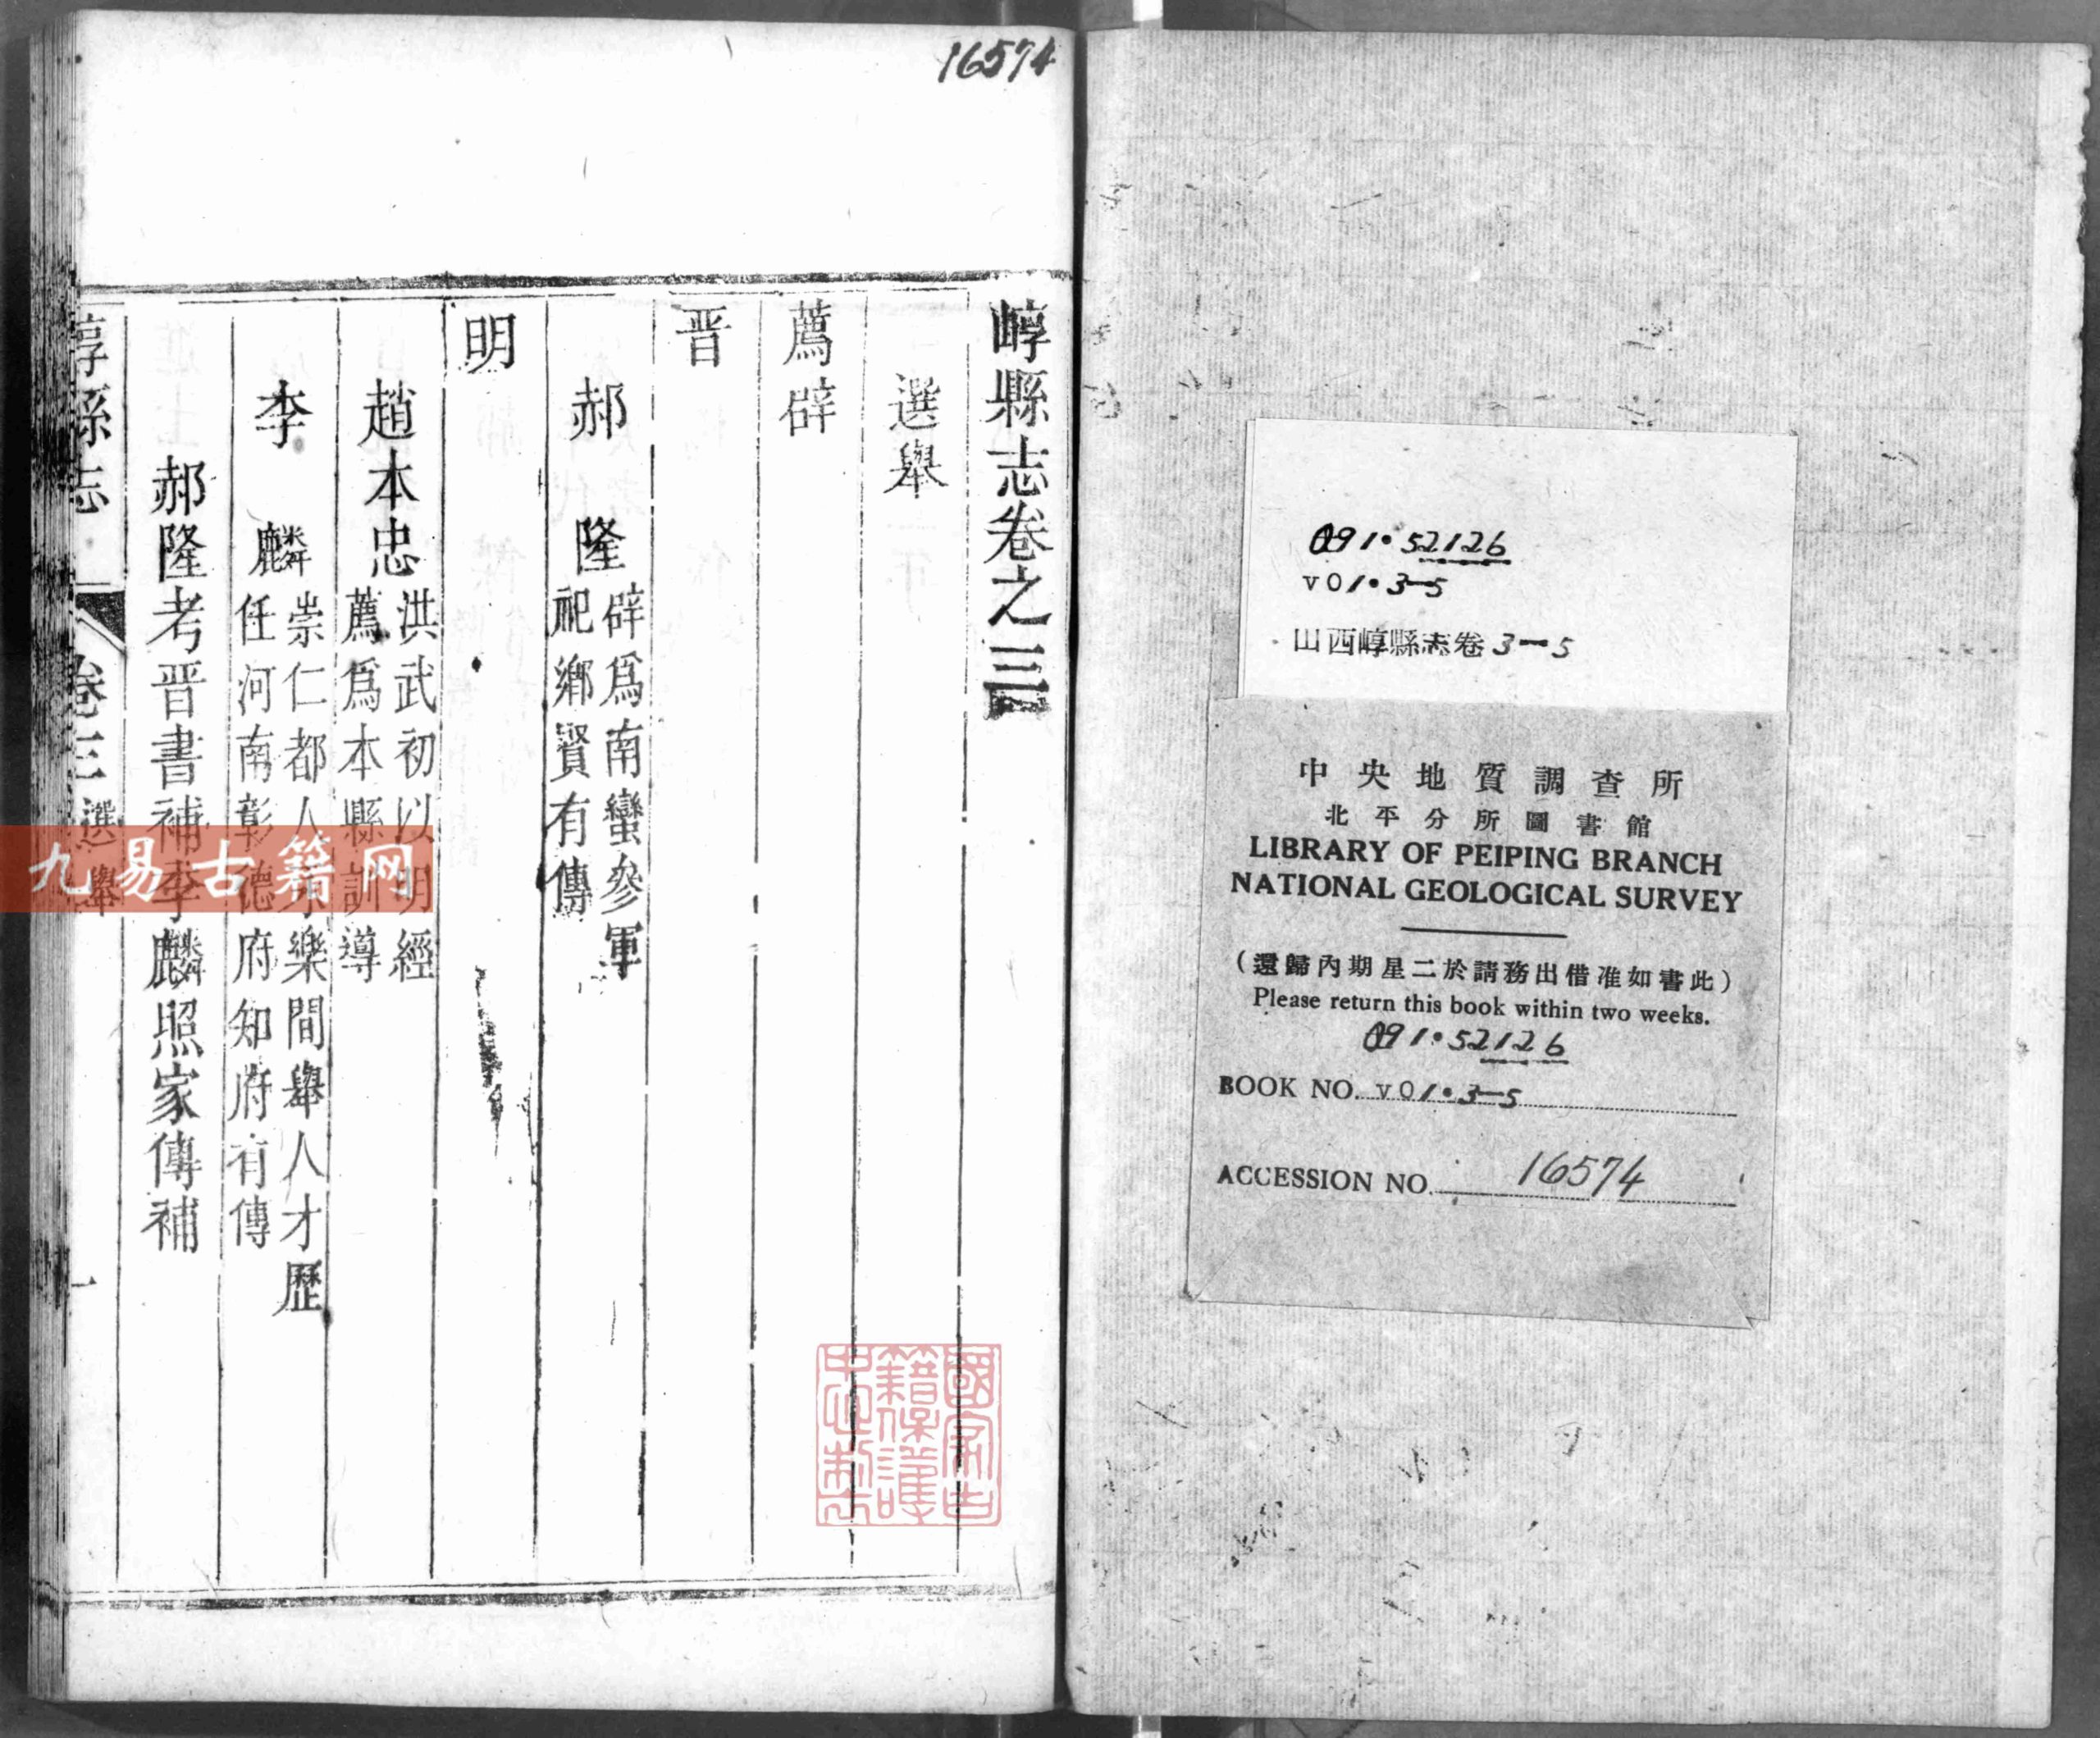 16574
崞縣志卷之三
選舉
薦辟
晋
郝隆 辟爲南蠻參軍
祀鄉賢有傳
明
趙本忠 洪武初以明經
薦爲本縣訓導
李麟 崇仁都人永樂間舉人才歷
任河南彰德府知府有傳
郝隆考晋書補李麟照家傳補
崞縣志 卷三 選舉 一
九易古籍网
國家古籍保護中心制
091.52126
vol.3-5
山西崞縣志卷3-5
中央地質調查所
北平分所圖書館
LIBRARY OF PEIPING BRANCH
NATIONAL GEOLOGICAL SURVEY
(還歸內期星二於請務出借准如書此)
Please return this book within two weeks.
091.52126
BOOK NO. vol.3-5
ACCESSION NO. 16574